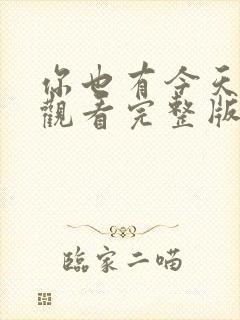 你也有今天
觀看完整版
臨家二喵